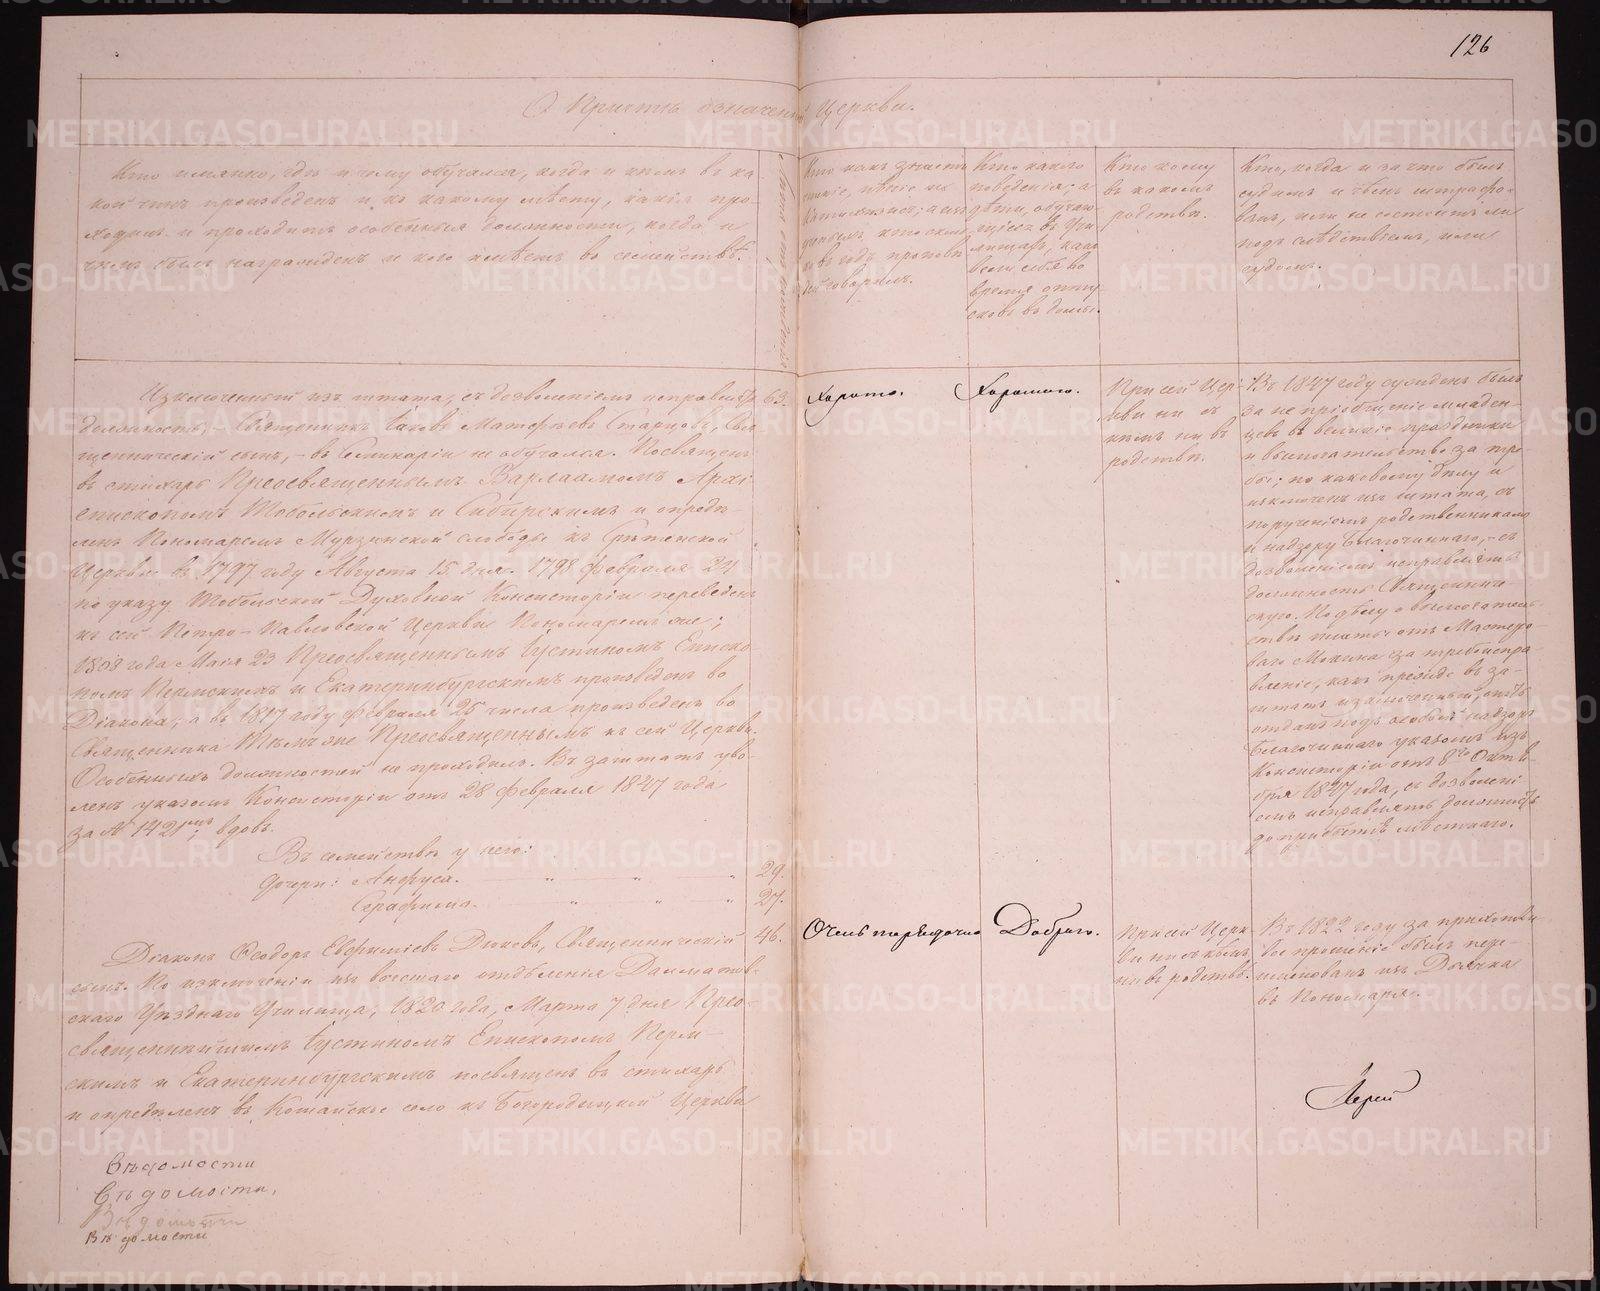 126
О Причтѣ означенной Церкви.
Кто имянно, гдѣ и чему обучался, когда и кѣмъ въ ка-
кой чинъ произведенъ и къ какому мѣсту, какія про-
ходилъ и проходитъ особенныя должности, когда и
чѣмъ былъ награжденъ и кого имѣетъ въ семействѣ.
Лѣта отъ рожденія
Кто какъ знаетъ
чтеніе, пѣніе и
Катихизисъ; а изъ
въ годъ проповѣ-
дей говорилъ.
Кто какого
поведенія; а
дѣти, обучаю-
щіеся въ Учи-
лищахъ, какъ
вели себя во
время отпу-
сковъ въ домы.
Кто кому
въ какомъ
родствѣ.
Кто, когда и за что былъ
судимъ и чѣмъ штрафо-
ванъ, или не состоитъ ли
подъ слѣдствіемъ, или
судомъ.
Изключенный изъ штата, съ дозволеніемъ исправлять
должность, – Священникъ Іаковъ Матѳѣевъ Старцовъ, Свя-
щенническій сынъ, – въ Семинаріи не обучался. Посвященъ
въ стихарь Преосвященнымъ Варлаамомъ Архі-
епископомъ Тобольскимъ и Сибирскимъ и опредѣ-
ленъ Пономаремъ Мурзинской слободы къ Срѣтенской
Церкви въ 1797 году Августа 15 дня. 1798 Февраля 24
по указу Тобольской Духовной Консисторіи переведенъ
къ сей Петро-Павловской Церкви Пономаремъ же;
1808 года Маія 23 Преосвященнымъ Іустиномъ Еписко-
помъ Пермскимъ и Екатеринбургскимъ произведенъ во
Діакона; а въ 1817 году Февраля 25 числа произведенъ во
Священника Тѣмъ же Преосвященнымъ къ сей Церкви.
Особенныхъ должностей не проходилъ. Въ заштатъ уво-
ленъ указомъ Консисторіи отъ 28 Февраля 1847 года
за № 1421мъ; вдовъ.
63.
Хорошо.
Хорошаго.
При сей Цер-
кви ни съ
кѣмъ ни въ
родствѣ.
Въ 1847 году сужденъ былъ
за не пріобщеніе младен-
цевъ въ великіе праздники
и вымогательство за тре-
бы; по каковому дѣлу и
изключенъ изъ штата, съ
порученіемъ родственникамъ
и надзору Благочиннаго, – съ
дозволеніемъ исправлять
должность Священниче-
скую. По дѣлу о вымогатель-
ствѣ платы отъ Мастеро-
ваго Мокина за требоиспра-
вленіе, какъ прежде въ за-
штатъ изключенный, опять
отданъ подъ особый надзоръ
Благочиннаго указомъ изъ
Консисторіи отъ 8го Октя-
бря 1847 года, съ дозволені-
емъ исправлять должность
до прибытія мѣстнаго.
Въ семействѣ у него:
Дочери: Анфуса. " " " 29.
Серафима. " " " 27.
Діаконъ Ѳеодоръ Евфиміевъ Диковъ, Священническій
сынъ. По изключеніи изъ высшаго отдѣленія Далматов-
скаго Уѣзднаго Училища, 1820 года, Марта 7 дня Прео-
священнѣйшимъ Іустиномъ Епископомъ Перм-
скимъ и Екатеринбургскимъ посвященъ въ стихарь
и опредѣленъ въ Котайское село къ Богородицкой Церкви
46.
Очень порядочно
Добраго.
При сей Церк-
ви ни съ кѣмъ
ни въ родствѣ.
Въ 1822 году за прихотли-
вое прошеніе былъ пере-
именованъ изъ Дьячка
въ Пономаря.
Іерей
Вѣдомости
Вѣдомости,
Вѣдомости
Вѣдомости